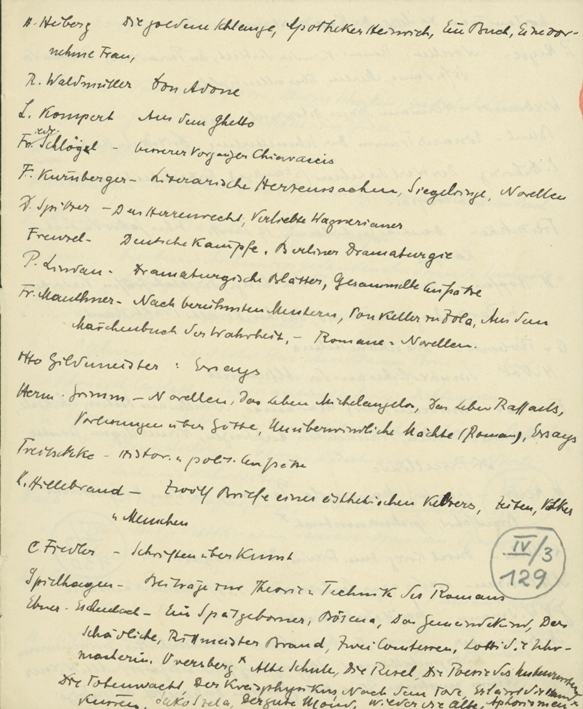 H. Heiberg Die goldene Schlange, Apotheker Heinrich, Ein Buch, Eine vor-
nehme Frau,
R. Waldmüller Don Adone
L. Kompert Aus dem Ghetto
Fr. Schlögl –
F. Kürnberger – Literarische Herzenssachen, Siegelringe, Novellen
D. Spitzer – Das Herrenrecht, Verliebte Wagnerianer
Frenzel – Deutsche Kämpfe, Berliner Dramaturgie
P. Lindau – Dramaturgische Blätter, Gesammelte Aufsätze
Fr. Mauthner – Nach berühmten Mustern, Von Keller zu Zola, Aus dem
Märchenbuch der Wahrheit, – Romane u Novellen.
Otto Gildemeister : Essays
Herm. Grimm – Novellen, Das Leben Michelangelos, Das Leben Raffaels,
Vorlesungen über Göthe, Unüberwindliche Mächte (Roman), Essays
Treitschke – Histor. u polit. Aufsätze
K. Hillebrand – Zwölf Briefe eines ästhetischen Ketzers, Zeiten, Völker
u Menschen
C Fiedler – Schriften über Kunst
IV/3
129
Spielhagen – Beiträge zur Theorie u Technik des Romans
Ebner-Eschenbach – Ein Spätgeborner, Božena, Das Gemeindekind, Der
Schädliche, Rittmeister Brand, Zwei Comtessen, Lotti die Uhr-
macherin, Oversberg, Alte Schule, Die Resel, Die Poesie des Unbewussten
Die Totenwacht, Der Kreisphysikus, Nach dem Tode, Er laßt die Hand
küssen, Jakob Szela, Der gute Mond, Wieder die Alte, Aphorismen